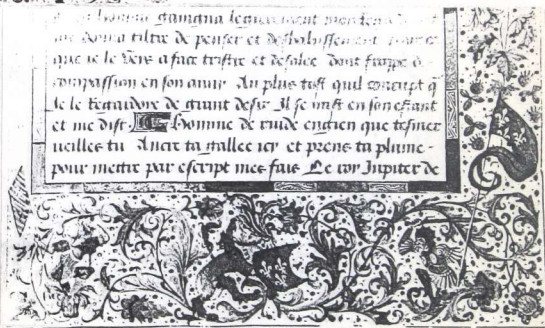 gaingna
me donna tiltre de penser et desbahissement
que ie le veis a face triste et desolee dont frappe de
compassion en son amy Au plus tost quil concupt q
ie le regardoie de grant desir Il se mist en son estant
et me dist Homme de rude engien que te smer
ueilles tu Ancre ta gallee icy et prens ta plume
pour mettre par escript mes fais Le roy Iupiter de